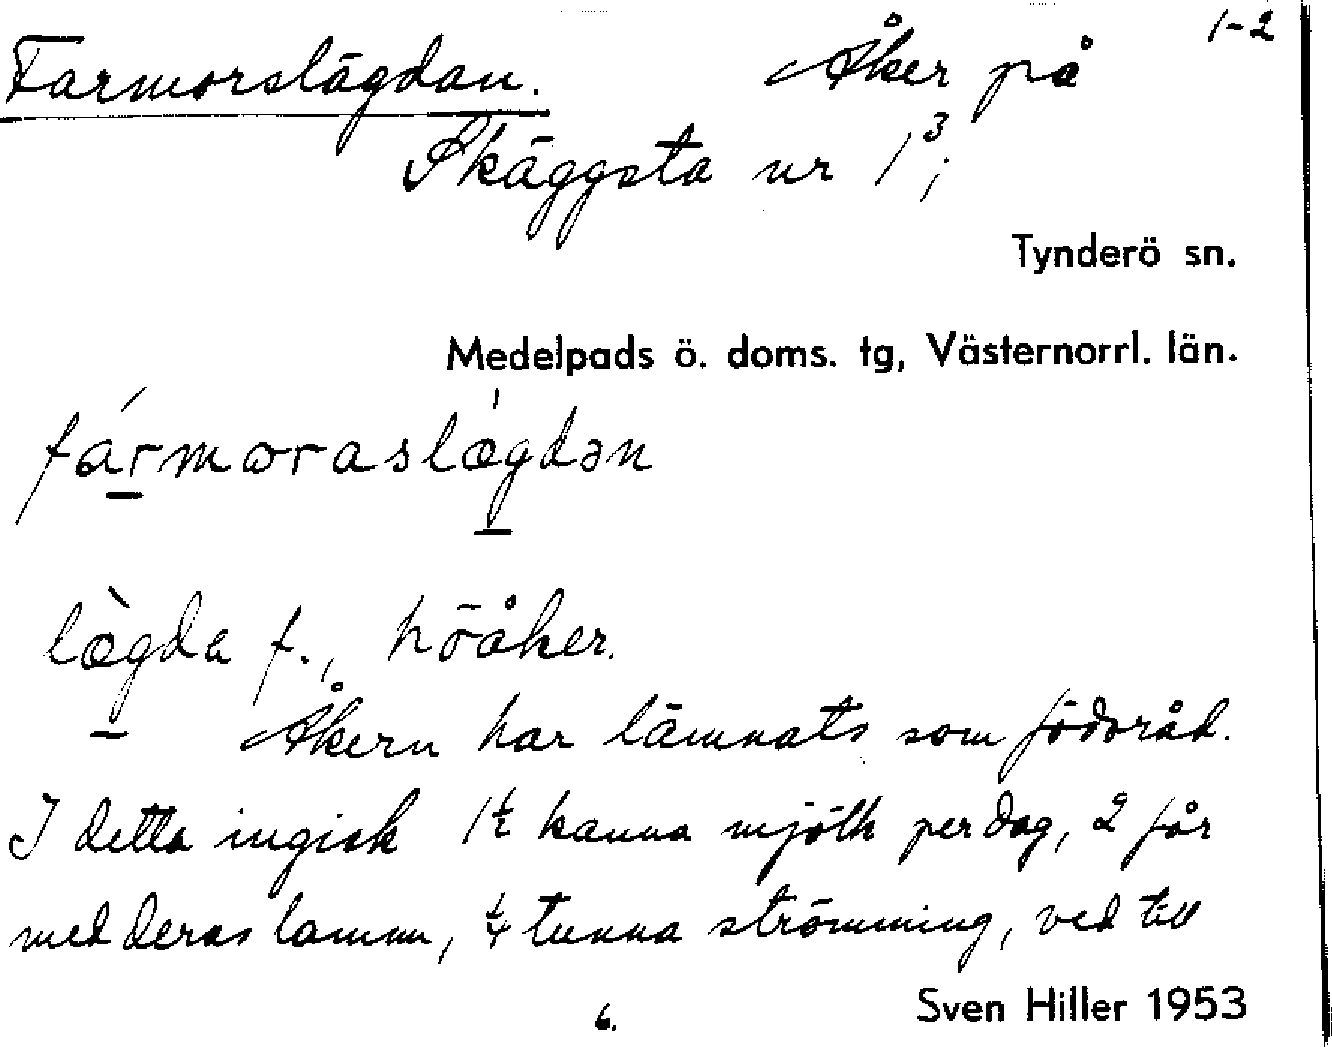 1-2
Farmorslägdan. Åker på
Skäggsta nr 1³;
Tynderö sn.
Medelpads ö. doms. tg, Västernorrl. län.
fármoraslægdən
lægda f., höåker.
Åkern har lämnats som födoråd.
I detta ingick 1½ kanna mjölk per dag, 2 får
med deras lamm, ¼ tunna strömming, ved till
6.
Sven Hiller 1953